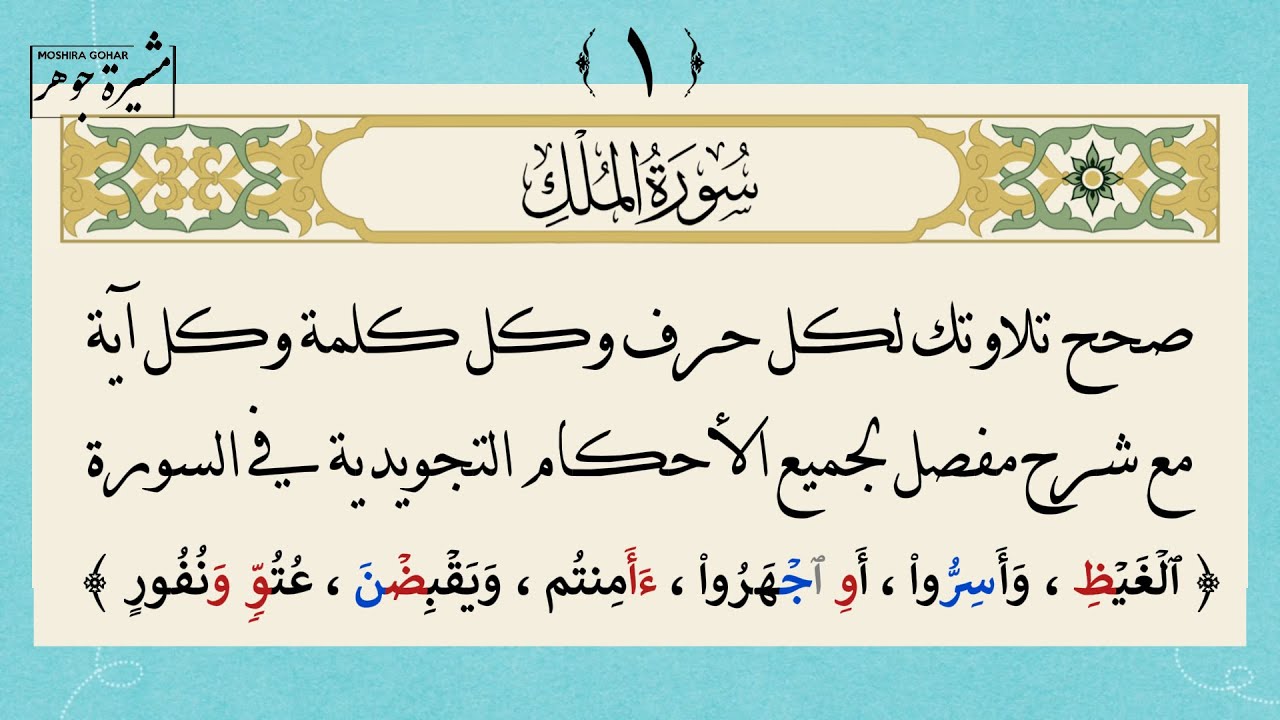 MOSHIRA GOHAR
مشيرة جوهر
﴿ ١ ﴾
سُورَةُ المُلْكِ
صحح تلاوتك لكل حرف وكل كلمة وكل آية
مع شرح مفصل لجميع الأحكام التجويدية في السورة
﴿ ٱلْغَيْظِ ، وَأَسِرُّوا۟ ، أَوِ ٱجْهَرُوا۟ ، ءَأَمِنتُم ، وَيَقْبِضْنَ ، عُتُوٍّ وَنُفُورٍ ﴾